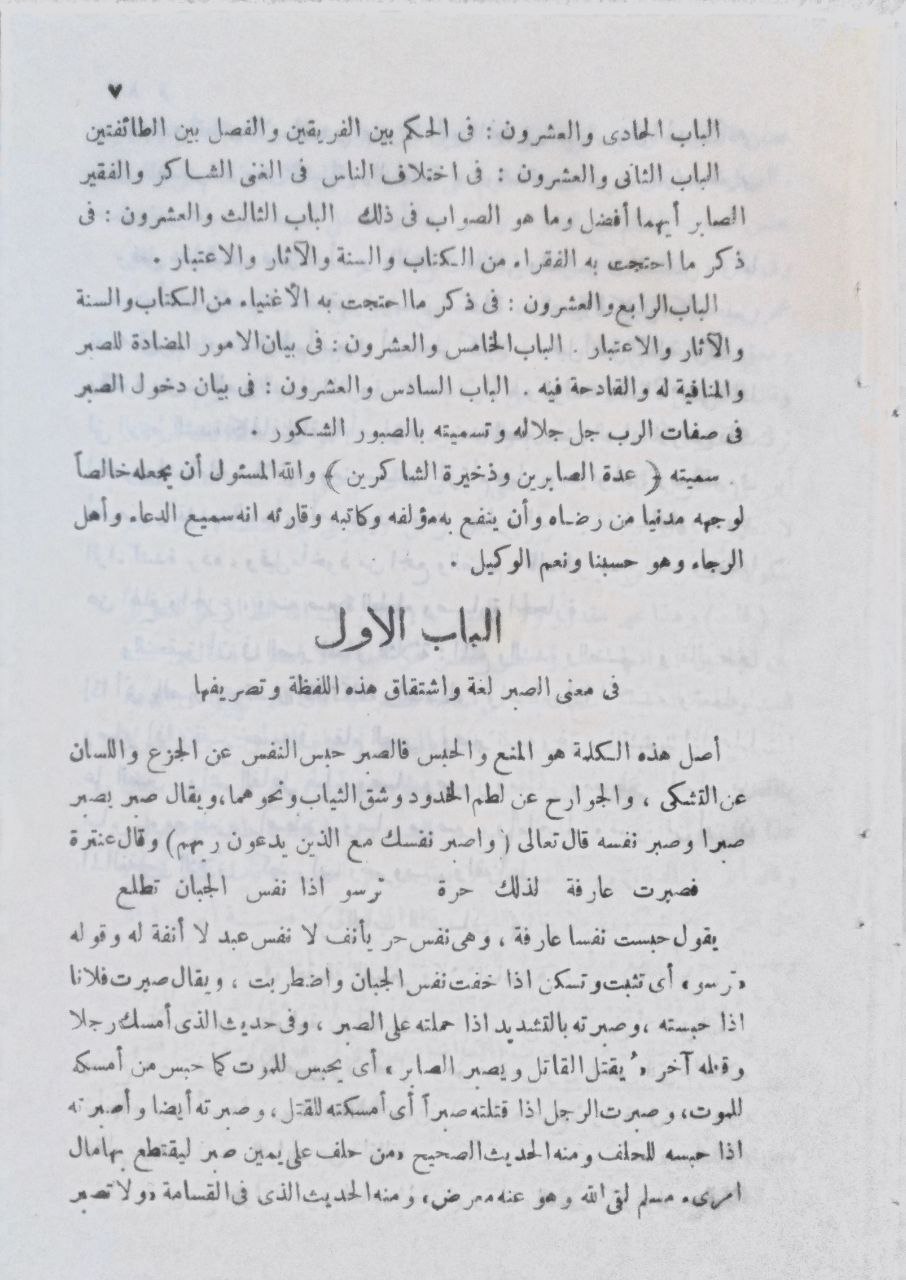 ٧
الباب الحادى والعشرون : فى الحكم بين الفريقين والفصل بين الطائفتين
الباب الثانى والعشرون : فى اختلاف الناس فى الغنى الشاكر والفقير
الصابر أيهما أفضل وما هو الصواب فى ذلك الباب الثالث والعشرون : فى
ذكر ما احتجت به الفقراء من الكتاب والسنة والآثار والاعتبار .
الباب الرابع والعشرون : فى ذكر ما احتجت به الأغنياء من الكتاب والسنة
والآثار والاعتبار . الباب الخامس والعشرون : فى بيان الامور المضادة للصبر
والمنافية له والقادحة فيه . الباب السادس والعشرون : فى بيان دخول الصبر
فى صفات الرب جل جلاله وتسميته بالصبور الشكور .
سميته ( عدة الصابرين وذخيرة الشاكرين ) والله المسئول أن يجعله خالصاً
لوجهه مدنيا من رضاه وأن ينفع به مؤلفه وكاتبه وقارئه انه سميع الدعاء وأهل
الرجاء وهو حسبنا ونعم الوكيل .
الباب الاول
فى معنى الصبر لغة واشتقاق هذه اللفظة وتصريفها
أصل هذه الكلمة هو المنع والحبس فالصبر حبس النفس عن الجزع واللسان
عن التشكى ، والجوارح عن لطم الخدود وشق الثياب ونحوهما، ويقال صبر يصبر
صبرا وصبر نفسه قال تعالى ( واصبر نفسك مع الذين يدعون ربهم ) وقال عنترة
فصبرت عارفة لذلك حرة ترسو اذا نفس الجبان تطلع
يقول حبست نفسا عارفة ، وهى نفس حر يأنف لا نفس عبد لا أنفة له وقوله
«ترسو» أى تثبت وتسكن اذا خفت نفس الجبان واضطربت ، ويقال صبرت فلانا
اذا حبسته ، وصبرته بالتشديد اذا حملته على الصبر ، وفى حديث الذى أمسك رجلا
وقتله آخر «يُقتل القاتل ويصبر الصابر» أى يحبس للموت كما حبس من أمسكه
للموت، وصبرت الرجل اذا قتلته صبراً أى أمسكته للقتل ، وصبرته أيضا وأصبرته
اذا حبسه للحلف ومنه الحديث الصحيح «من حلف على يمين صبر ليقتطع بها مال
امرىء مسلم لقى الله وهو عنه معرض» ومنه الحديث الذى فى القسامة «ولا تصبر